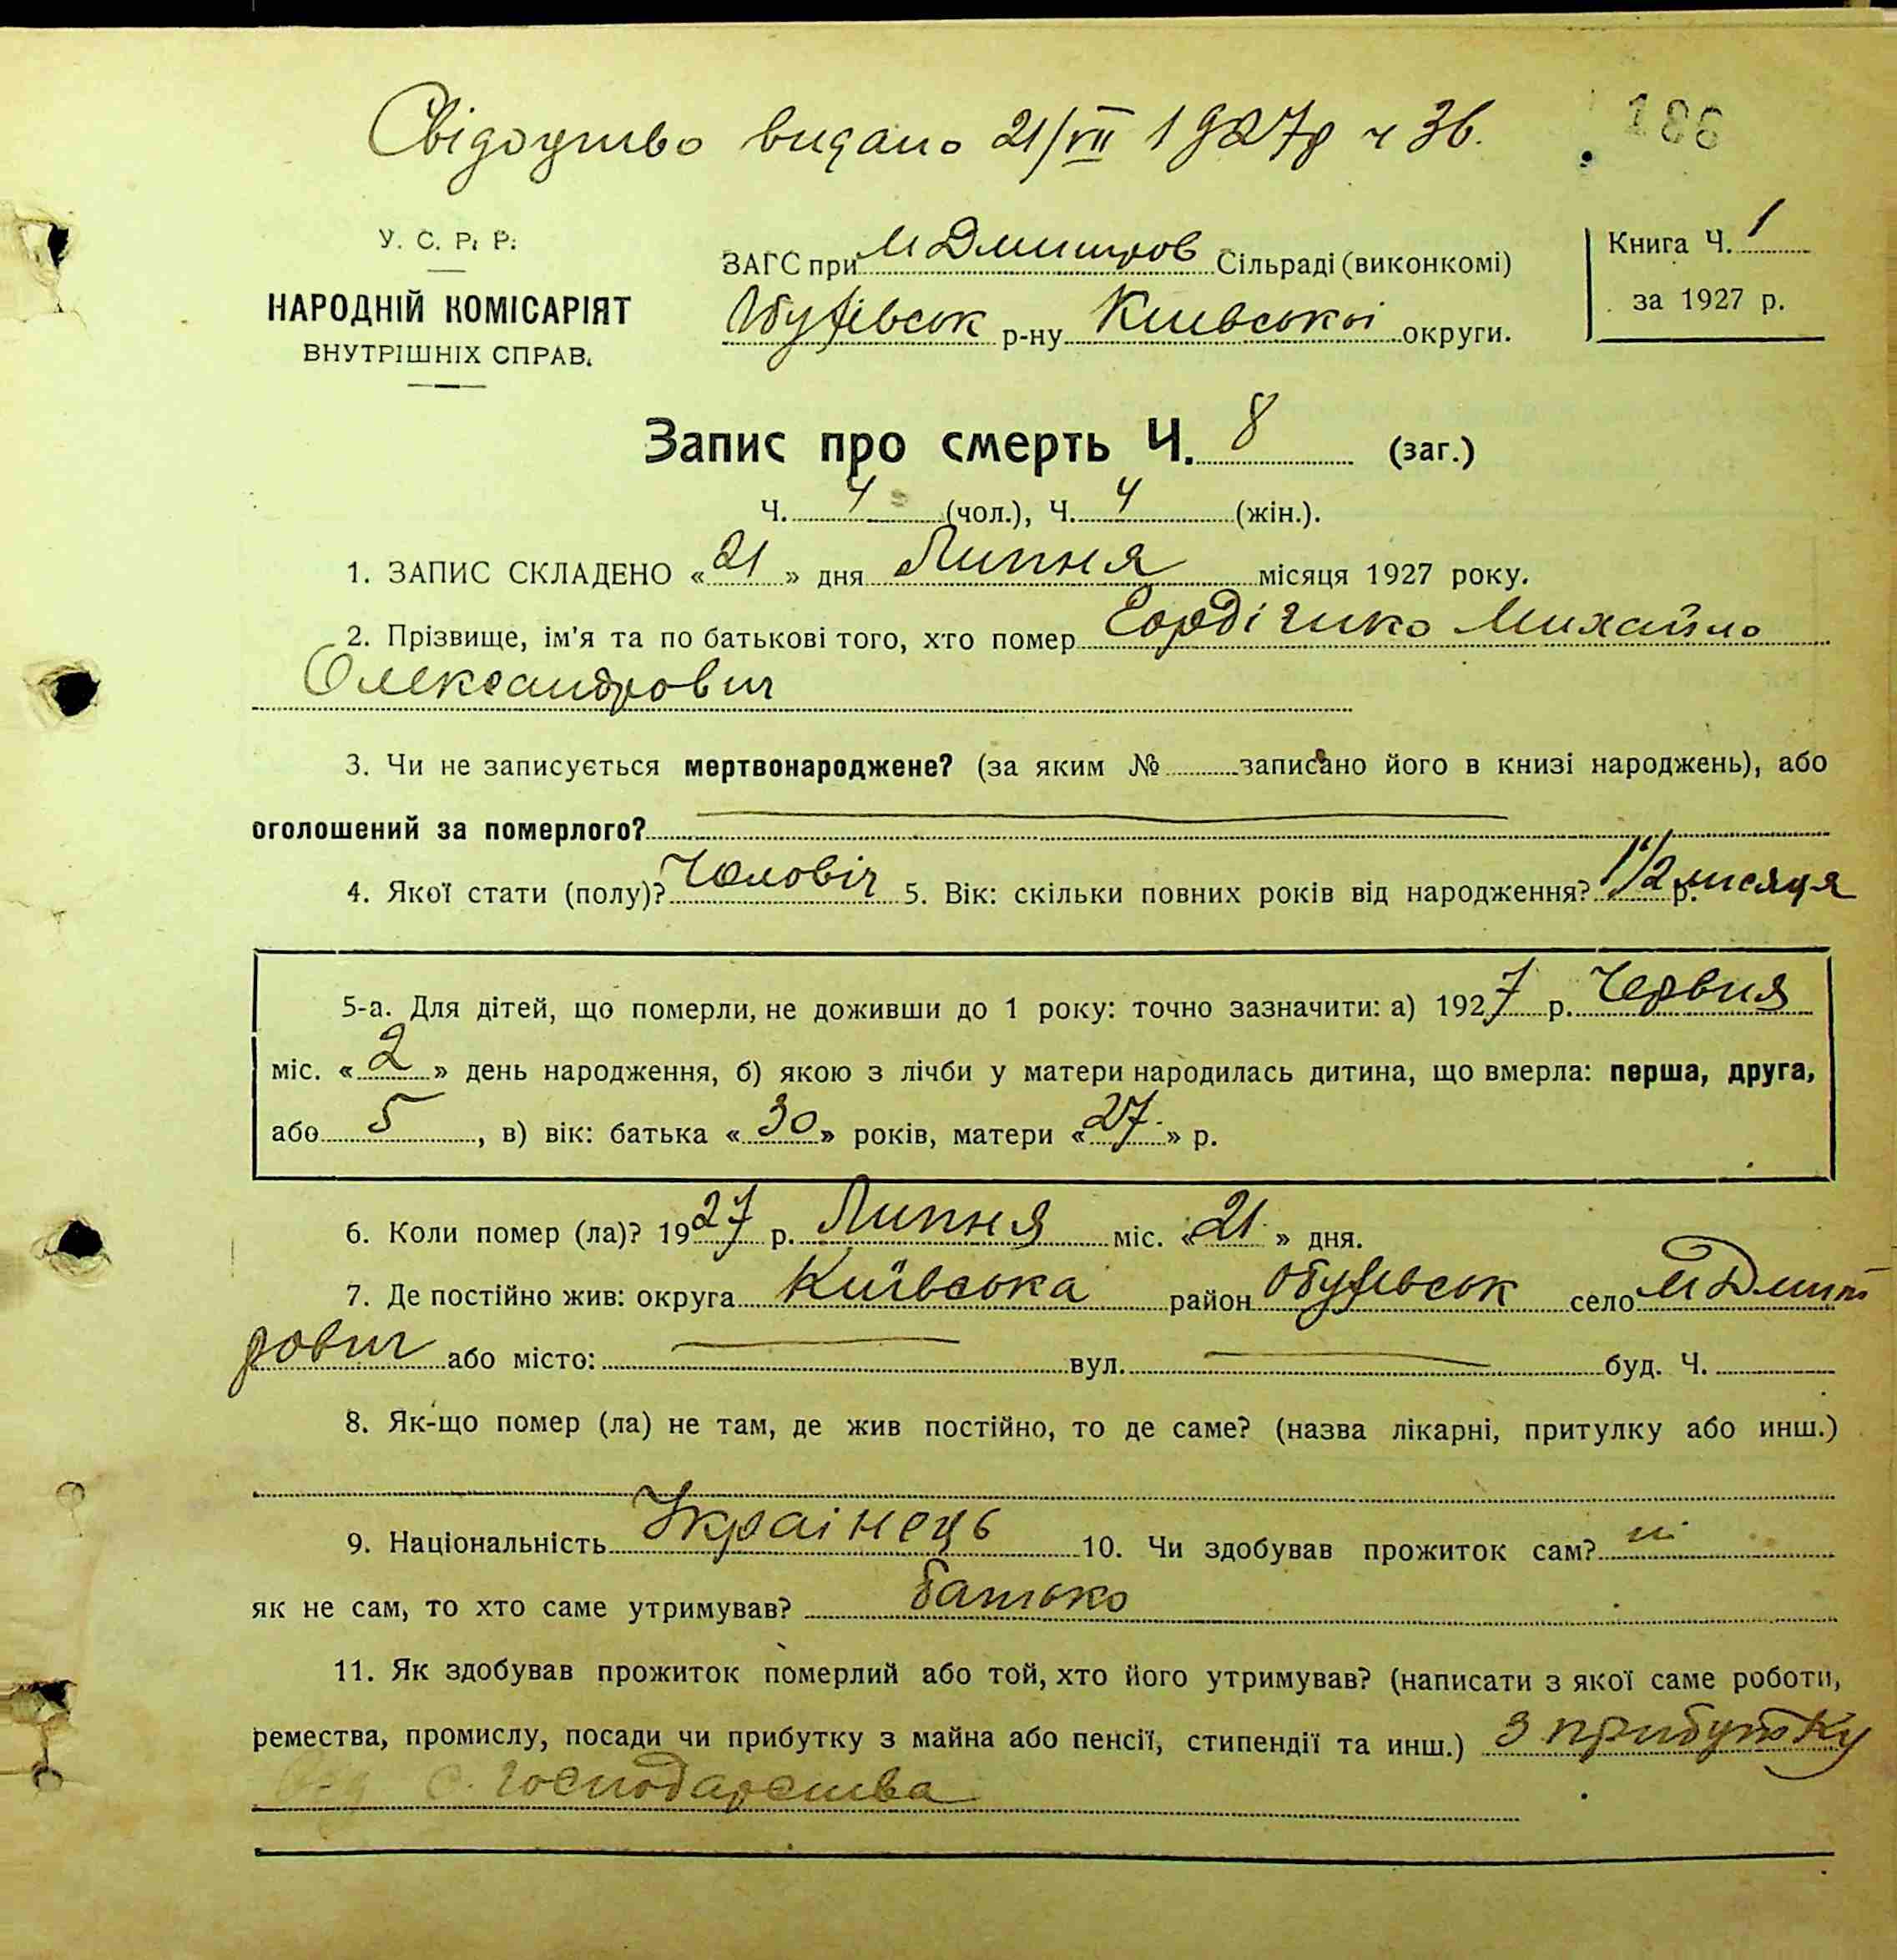 Свідоцтво видано 21/VII 1927р ч 36.
186
У. С. Р. Р.
НАРОДНІЙ КОМІСАРІЯТ
ВНУТРІШНІХ СПРАВ.
ЗАГС при М Дмитров Сільраді (виконкомі)
Обухівськ р-ну Київської округи.
Книга Ч. 1
за 1927 р.
Запис про смерть Ч. 8 (заг.)
Ч. 4 (чол.), Ч. 4 (жін.).
1. ЗАПИС СКЛАДЕНО «21» дня Липня місяця 1927 року.
2. Прізвище, ім'я та по батькові того, хто помер Гордіенко Михайло
Олександрович
3. Чи не записується мертвонароджене? (за яким № записано його в книзі народжень), або
оголошений за померлого?
4. Якої стати (полу)? Чоловіч 5. Вік: скільки повних років від народження? 1 1/2 р. місяця
5-а. Для дітей, що померли, не доживши до 1 року: точно зазначити: а) 1927 р. Червня
міс. «2» день народження, б) якою з лічби у матери народилась дитина, що вмерла: перша, друга,
або 5, в) вік: батька «30» років, матери «27» р.
6. Коли помер (ла)? 1927 р. Липня міс. «21» дня.
7. Де постійно жив: округа Київська район Обухівськ село М Дмит
рович або місто: вул. буд. Ч.
8. Як-що помер (ла) не там, де жив постійно, то де саме? (назва лікарні, притулку або инш.)
9. Національність Украінець 10. Чи здобував прожиток сам? ні
як не сам, то хто саме утримував? батько
11. Як здобував прожиток померлий або той, хто його утримував? (написати з якої саме роботи,
ремества, промислу, посади чи прибутку з майна або пенсії, стипендії та инш.) З прибутку
від с. господарства